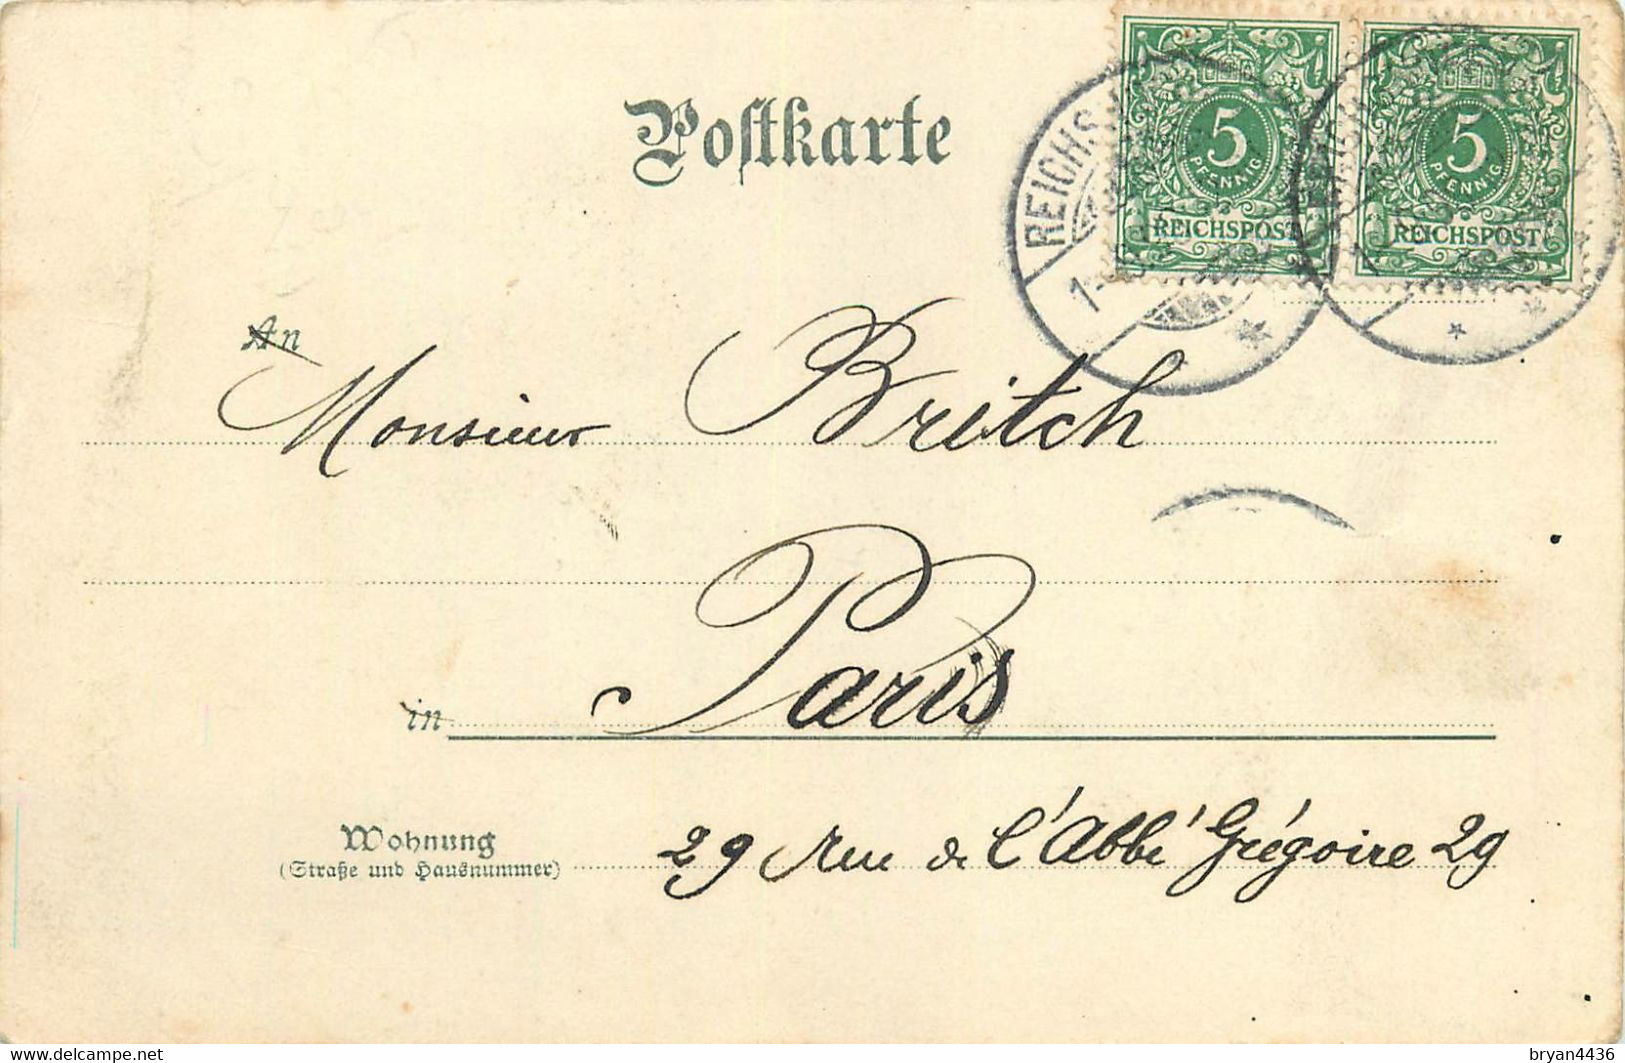 Postkarte
5
PFENNIG
REICHSPOST
5
PFENNIG
REICHSPOST
REICHS
An
Monsieur Britch
in Paris
Wohnung
(Straße und Hausnummer)
29 Rue de l'Abbé Grégoire 29
bryan4436